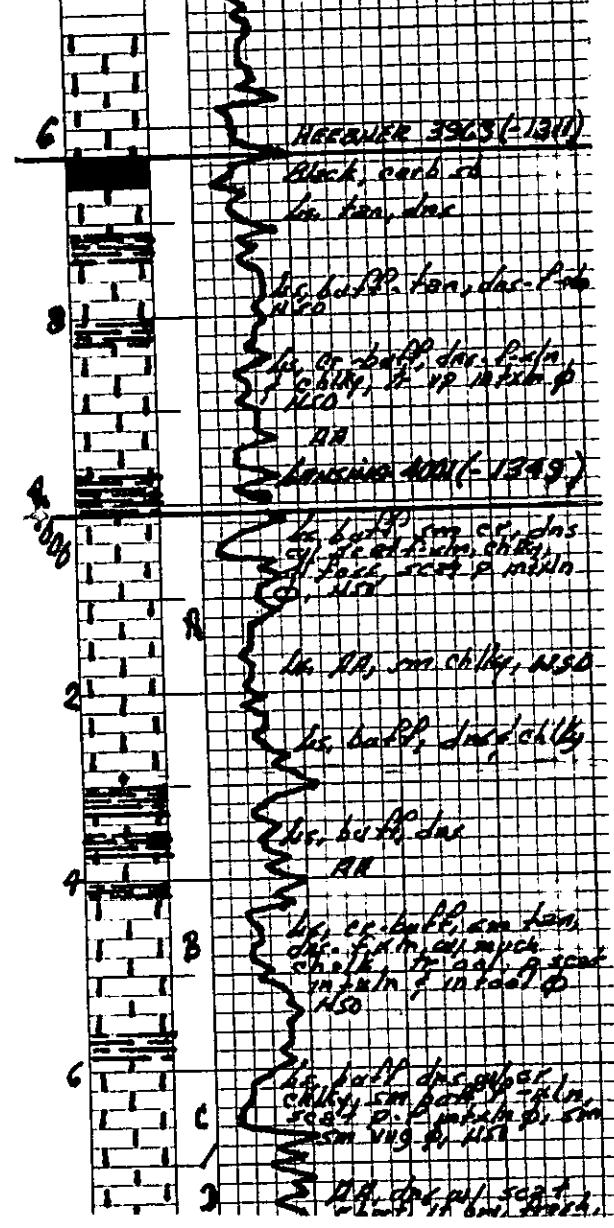 6
HEEBNER 3963 (-1311)
Black, carb sh
Ls, tan, dns
8
Ls, buff-tan, dns-f-xln
NSO
Ls, cr-buff, dns-f-xln
& chlky, vp intxln φ
NSO
AA
LANSING 4001 (-1349)
4000
Ls, buff, sm cr, dns
w/ scat f-xln, chlky,
foss, scat p intxln
φ, NSO
A
Ls, AA, sm chlky, NSO
2
Ls, buff, dns & chlky
Ls, buff, dns
4
AA
B
Ls, cr-buff, sm tan,
dns-f-xln, w/ much
chalk, tr ool, p scat
intxln & intool φ
NSO
6
Ls, buff dns
chlky, sm f-xln,
C
scat p-f intxln φ, sm
sm vug φ, NSO
D
AA, dns w/ scat